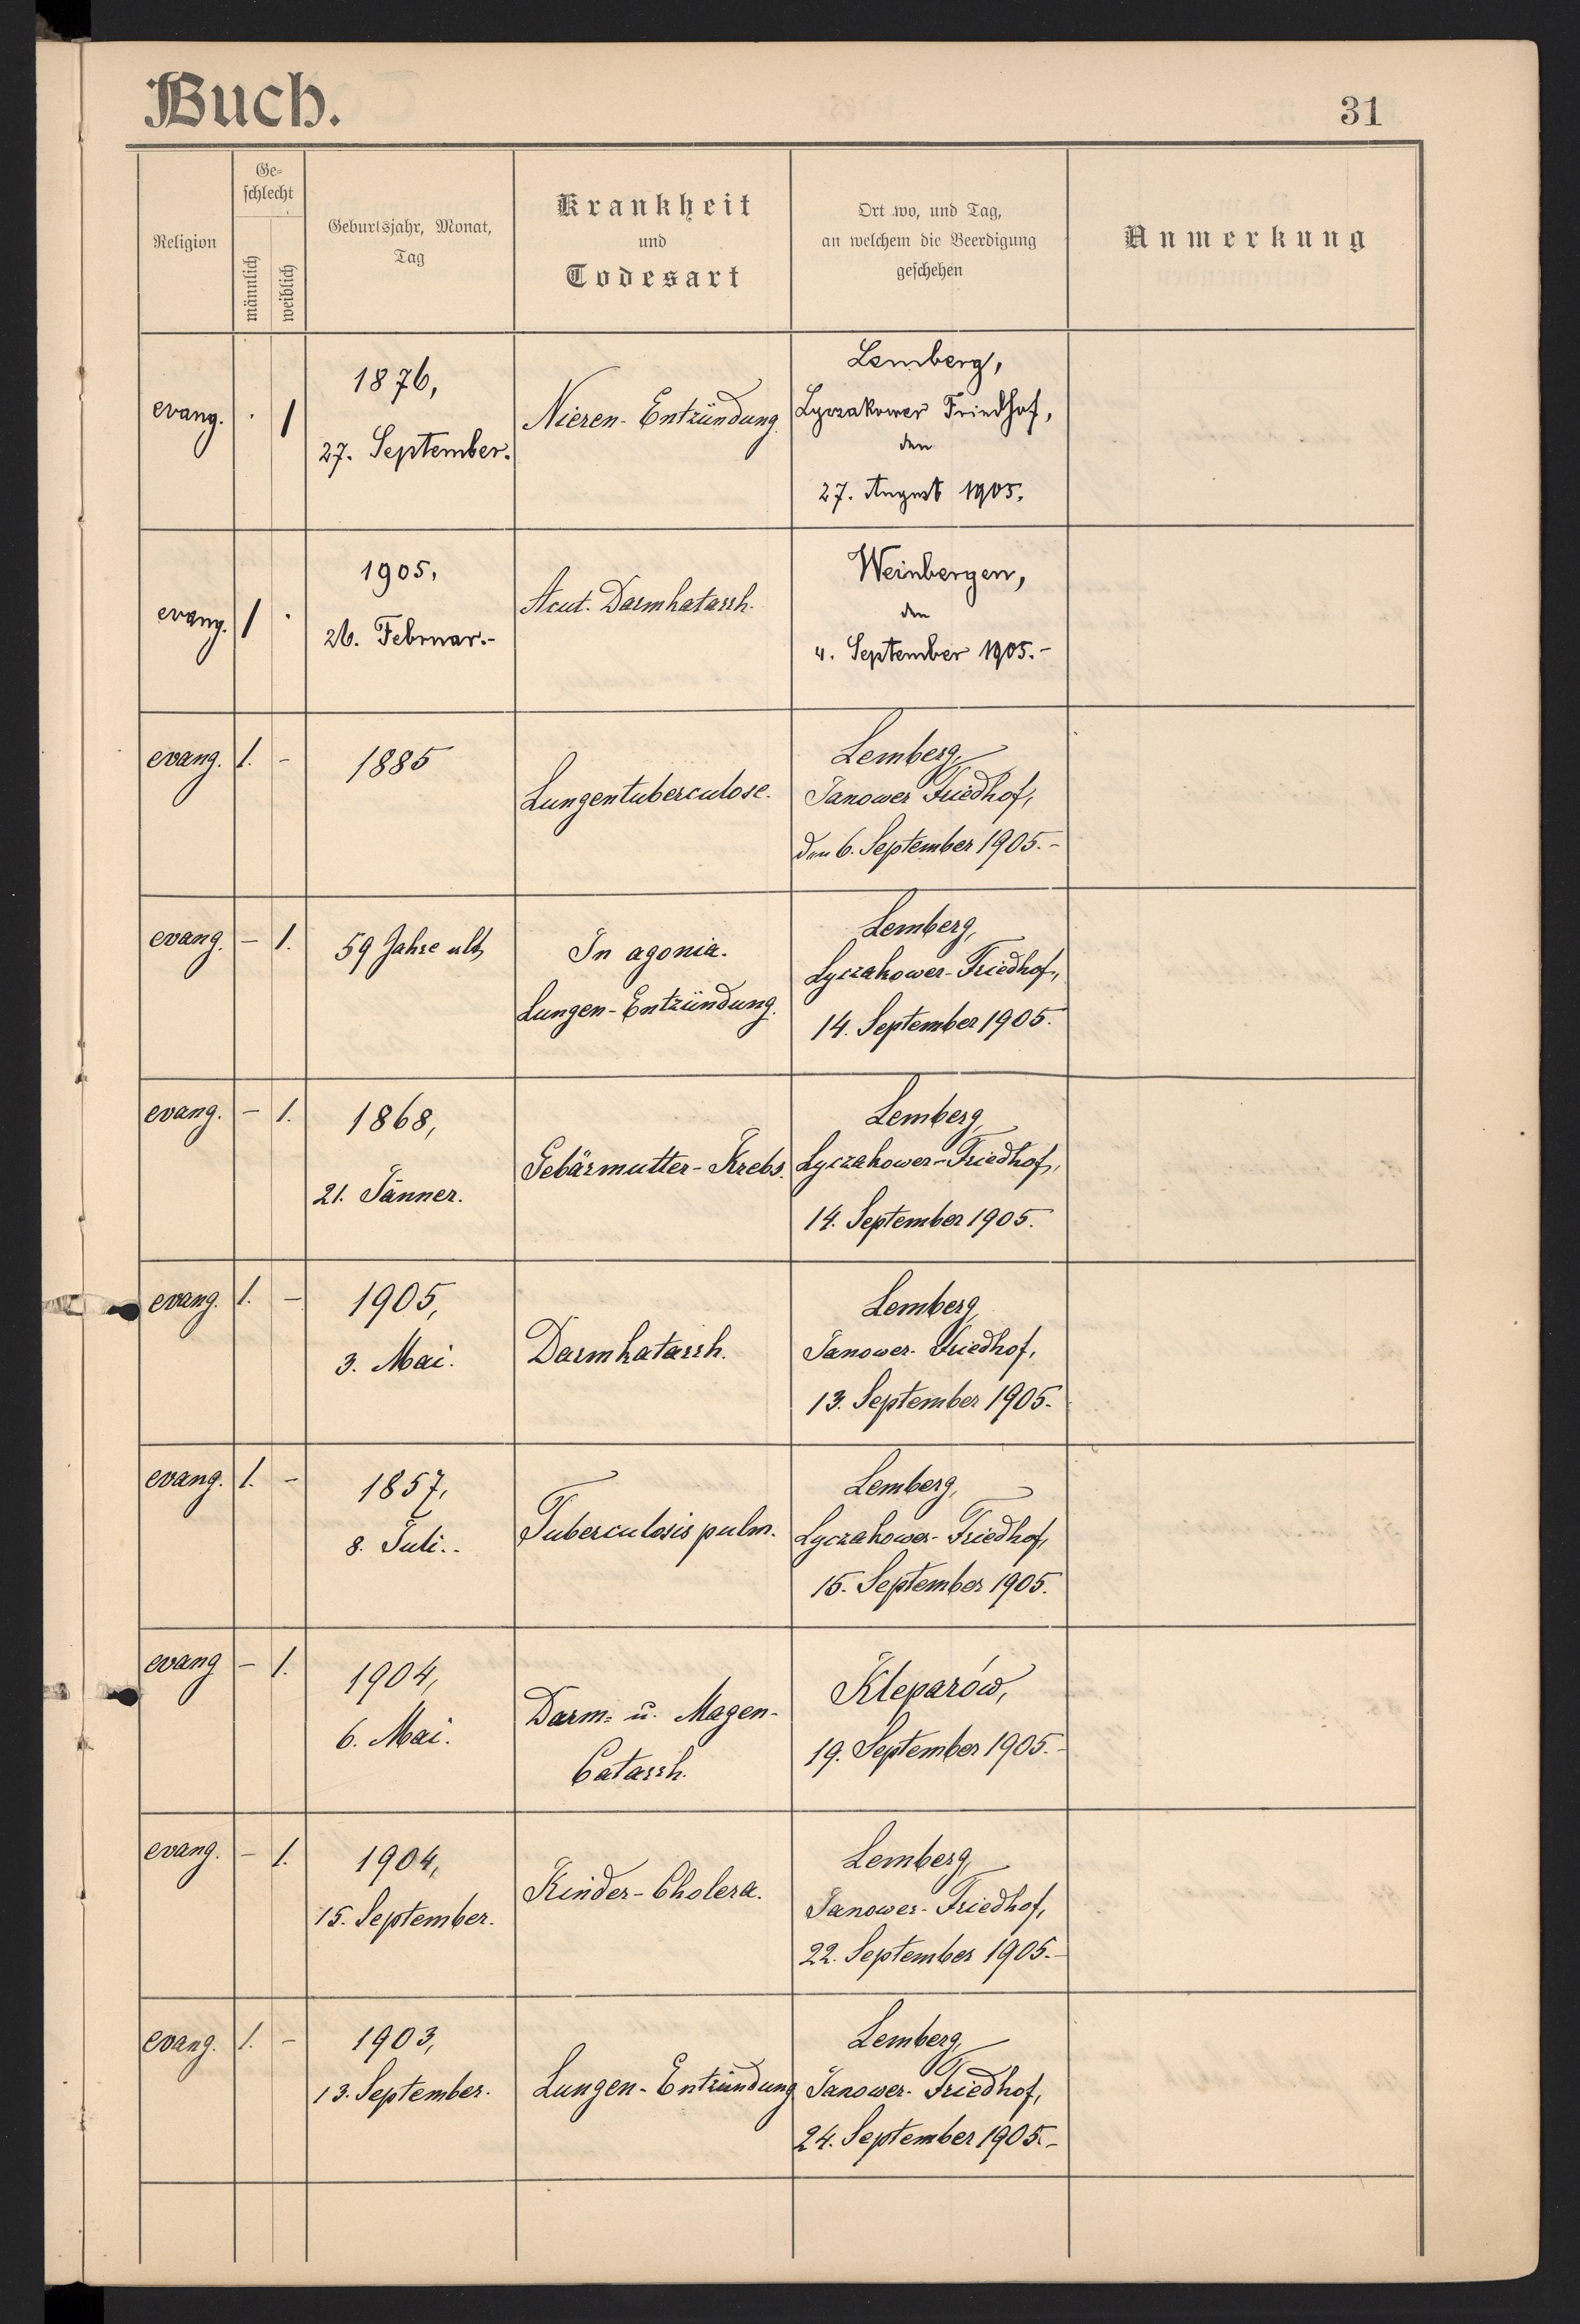 Buch.
31
Religion
Ge-
schlecht
männlich
weiblich
Geburtsjahr, Monat,
Tag
Krankheit
und
Todesart
Ort wo, und Tag,
an welchem die Beerdigung
geschehen
Anmerkung
evang. . 1
1876,
27. September.
Nieren-Entzündung.
Lemberg,
Lyczakower Friedhof,
den
27. August 1905.
evang. 1 .
1905,
26. Februar.-
Acut. Darmkatarrh.
Weinbergen,
den
4. September 1905.-
evang. 1. -
1885
Lungentuberculose.
Lemberg,
Janower Friedhof,
den 6. September 1905.-
evang. - 1.
59 Jahre alt,
In agonia.
Lungen-Entzündung.
Lemberg,
Lyczakower-Friedhof,
14. September 1905.
evang. - 1.
1868,
21. Jänner.
Gebärmutter-Krebs.
Lemberg,
Lyczakower-Friedhof,
14. September 1905.
evang. 1. -
1905,
3. Mai.
Darmkatarrh.
Lemberg,
Janower-Friedhof,
13. September 1905.
evang. 1. -
1857,
8. Juli.-
Tuberculosis pulm.
Lemberg,
Lyczakower-Friedhof,
15. September 1905.
evang - 1.
1904,
6. Mai.
Darm- u. Magen-
Catarrh.
Kleparów,
19. September 1905.-
evang. - 1.
1904,
15. September.
Kinder-Cholera.
Lemberg,
Janower-Friedhof,
22. September 1905.-
evang. 1. -
1903,
13. September.
Lungen-Entzündung
Lemberg,
Janower-Friedhof,
24. September 1905.-